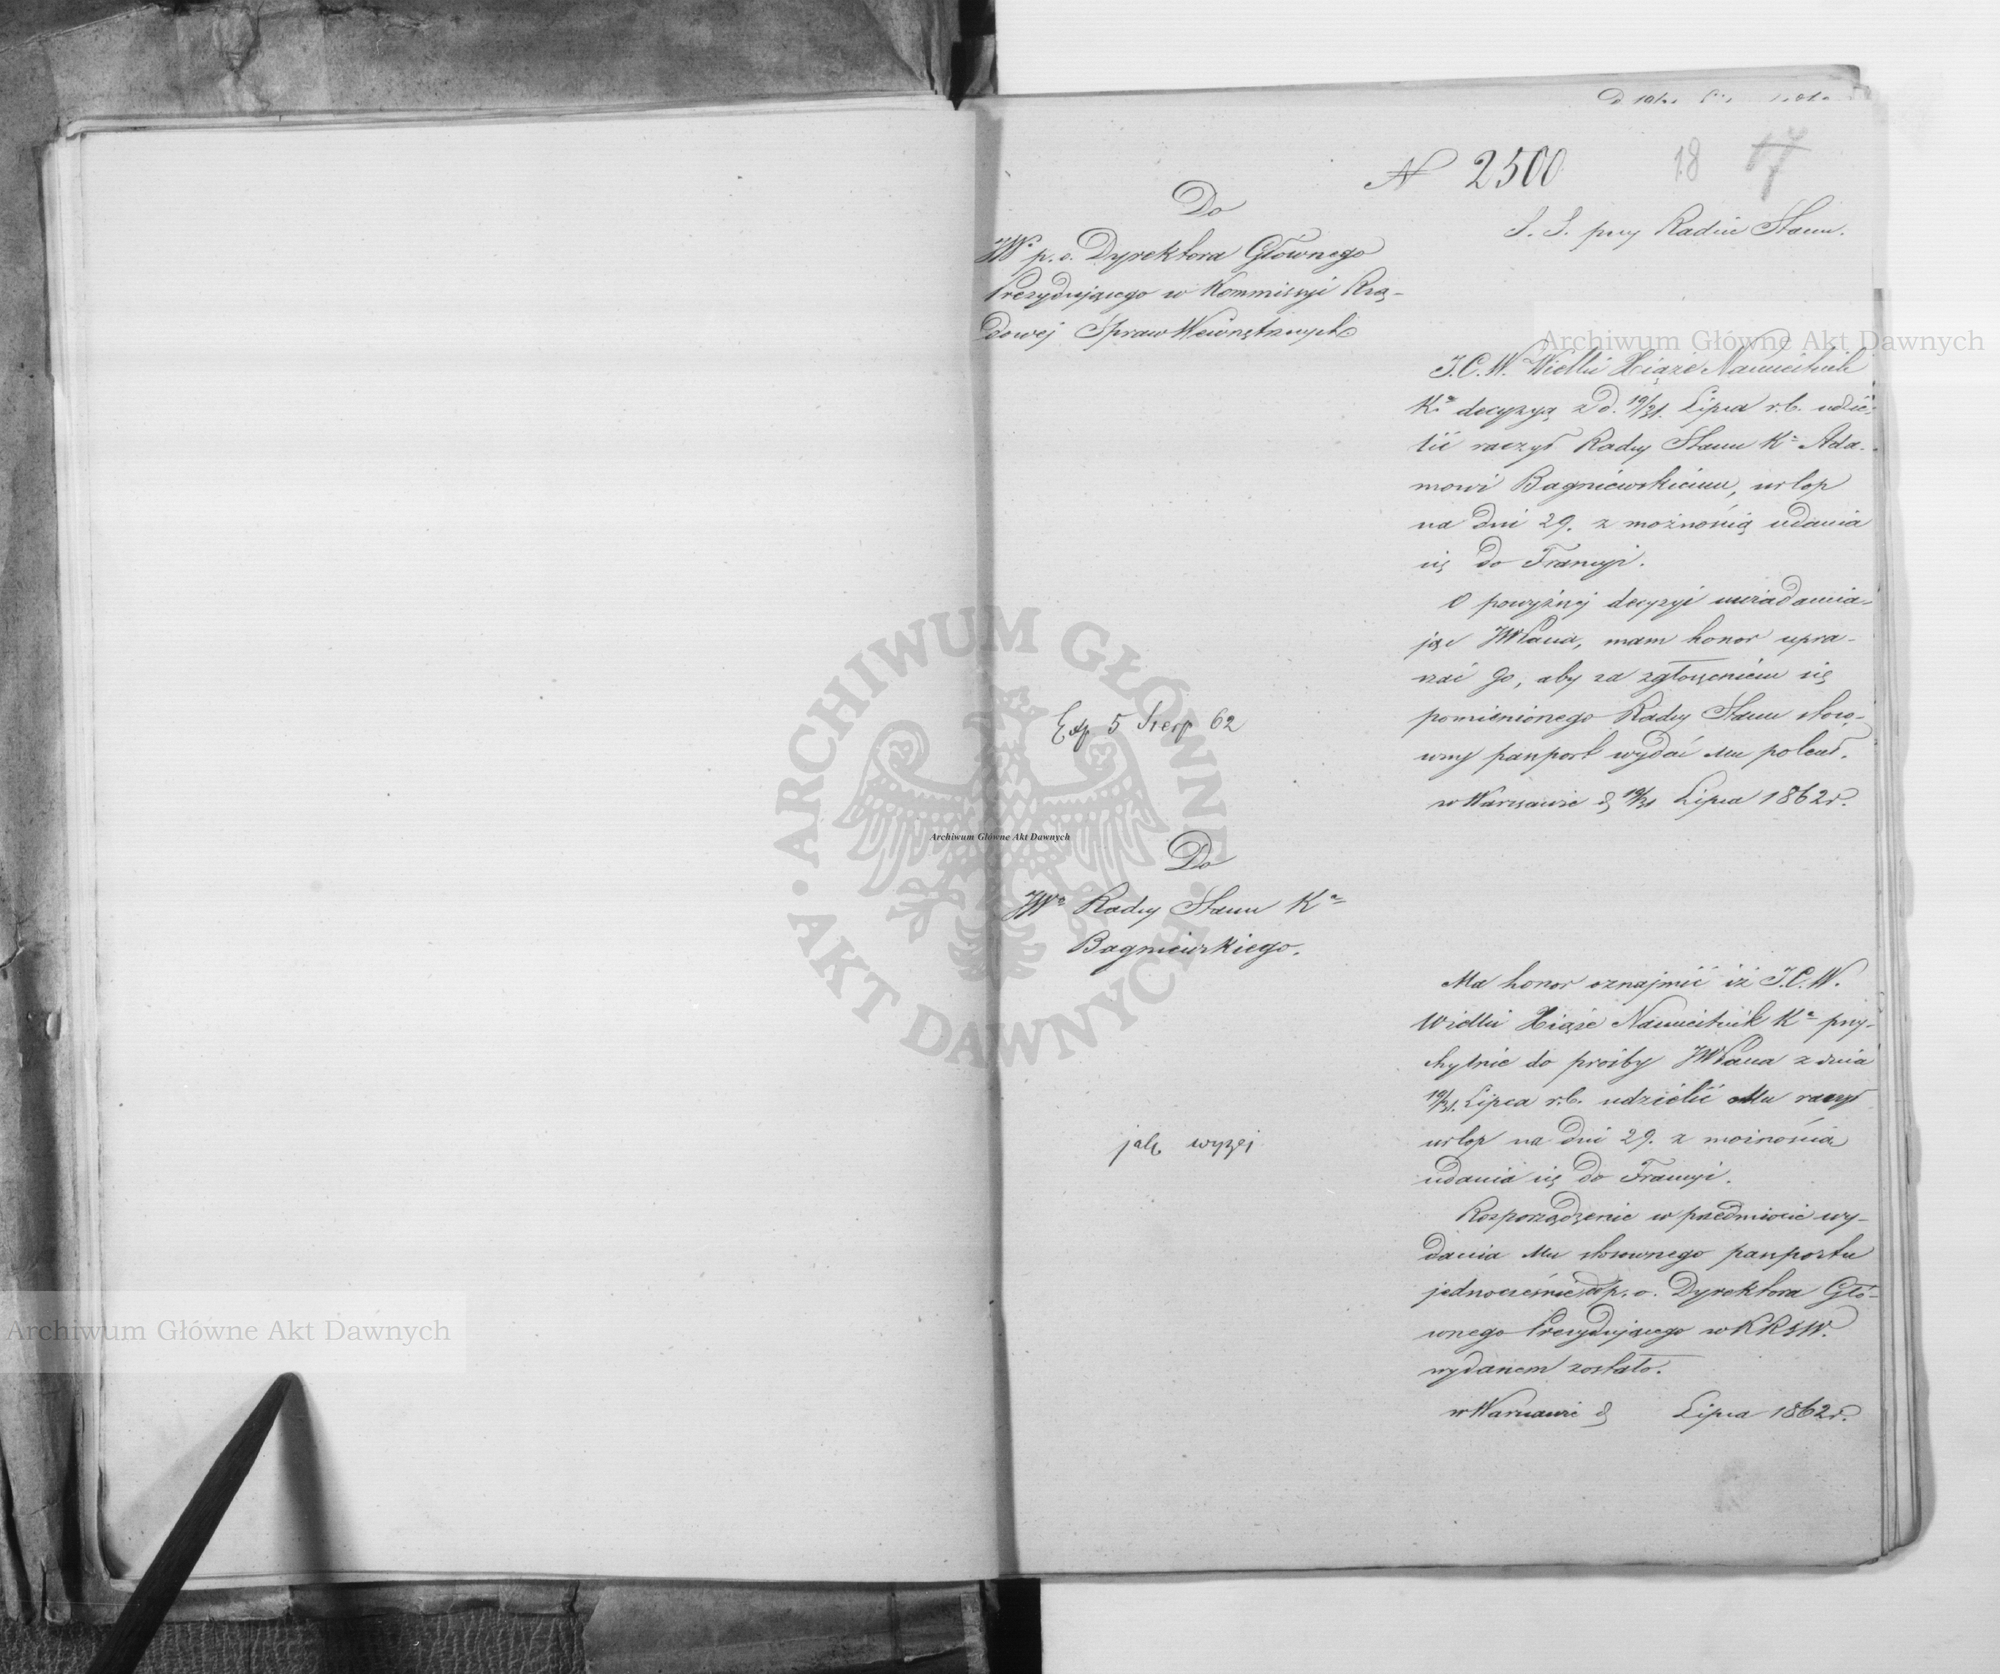 N 2500
18
17
Do
JW. p. o. Dyrektora Głównego
Prezydującego w Kommissyi Rzą-
dowej Spraw Wewnętrznych
S. S. przy Radzie Stanu.
J. C. W. Wielki Xiąże Namiestnik
Kr decyzyą z d. 19/31. Lipca r. b. udzie-
lić raczył Radcy Stanu Kr Ada-
mowi Bagniewskiemu, urlop
na dni 29. z możnością udania
się do Francyi.
O powyższej decyzyi uwiadamia-
jąc JWPana, mam honor upra-
szać Go, aby za zgłoszeniem się
pomienionego Radcy Stanu stoso-
wny paszport wydać Mu polecał.
w Warszawie d 19/31 Lipca 1862 r.
Exp 5 Sierp 62
Do
JWo Radcy Stanu Ko
Bagniewskiego.
Ma honor oznajmić iż J. C. W.
Wielki Xiąże Namiestnik Kr przy-
chylnie do prośby JWPana z dnia
19/31. Lipca r. b. udzielić Mu raczył
urlop na dni 29. z możnością
udania się do Francyi.
Rozporządzenie w przedmiocie wy-
dania Mu stosownego paszportu
jednocześnie do p. o. Dyrektora Głó-
wnego Prezydującego w KRSW.
wydanem zostało.
w Warszawie d Lipca 1862 r.
jak wyżej
Archiwum Główne Akt Dawnych
Archiwum Główne Akt Dawnych
Archiwum Główne Akt Dawnych
ARCHIWUM GŁÓWNE AKT DAWNYCH